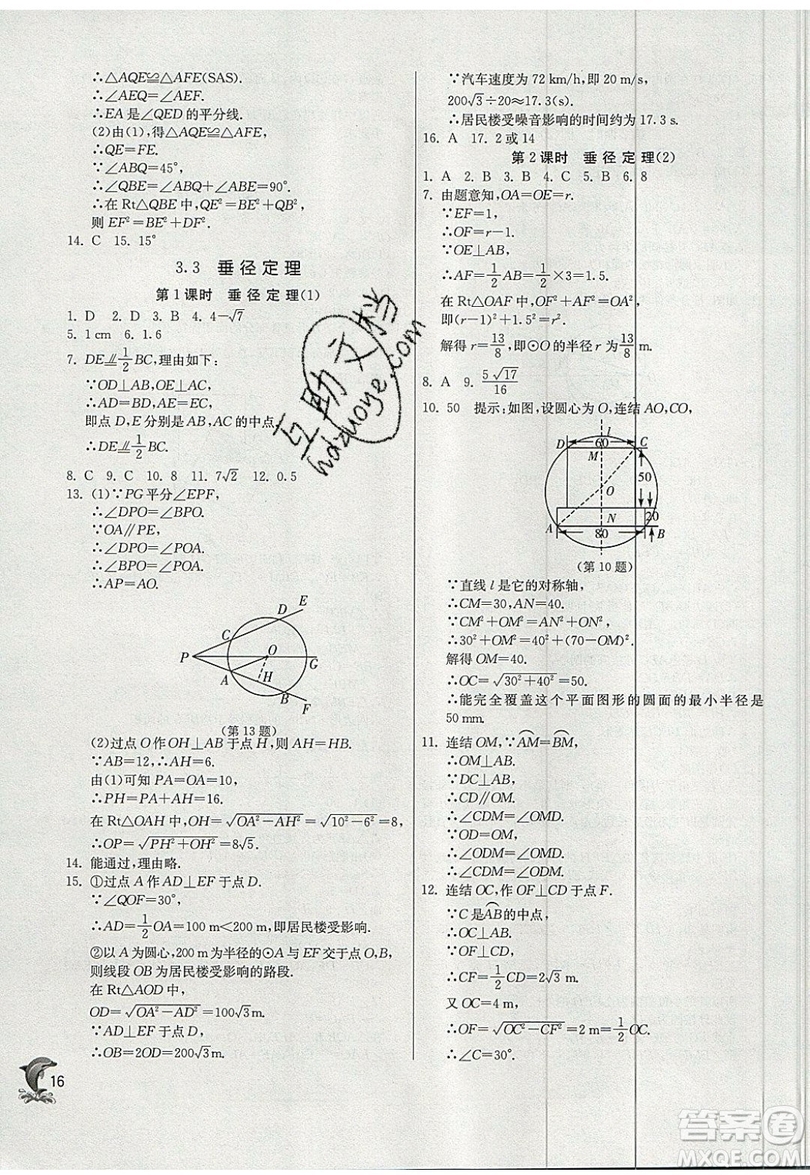 ∴△AQE≌△AFE(SAS).
∴∠AEQ=∠AEF.
∴EA是∠QED的平分线.
(2)由(1),得△AFE≌△AQE,
∴QE=FE.
∵∠ABQ=45°,
∴∠QBE=∠ABQ+∠ABE=90°.
∴在 Rt△QBE 中,QE²=BE²+QB²,
则 EF²=BE²+DF².
14. C 15. 15°
3.3 垂径定理
第1课时 垂径定理(1)
1. D 2. D 3. B 4. 4-√7
5. 1 cm 6. 1.6
7. DE⫽1/2BC,理由如下:
∵OD⊥AB,OE⊥AC,
∴AD=BD,AE=CE,
即点 D、E 分别是 AB、AC 的中点.
∴DE⫽1/2BC.
8. C 9. C 10. 8 11. 7√2 12. 0.5
13. (1)∵PG平分∠EPF,
∴∠DPO=∠BPO.
∵OA∥PE,
∴∠DPO=∠POA.
∴∠BPO=∠POA.
∴AP=AO.
E
D
C
P
O
G
A
H
B
F
(第13题)
(2)过点O作OH⊥AB于点H,则AH=HB.
∵AB=12,∴AH=6.
由(1)可知PA=OA=10,
∴PH=PA+AH=16.
在 Rt△OAH 中,OH=√(OA²-AH²)=√(10²-6²)=8,
∴OP=√(PH²+OH²)=8√5.
14. 能通过,理由略.
15. ①过点A作AD⊥EF于点D.
∵∠QOF=30°,
∴AD=1/2OA=100 m<200 m,即居民楼受影响.
②以A为圆心,200 m为半径的⊙A与EF交于点O、B,
则线段OB为居民楼受影响的路段.
在 Rt△AOD 中,
OD=√(OA²-AD²)=100√3 m.
∵AD⊥EF于点D,
∴OB=2OD=200√3 m.
16
∵汽车速度为 72 km/h,即 20 m/s,
200√3÷20≈17.3(s).
∴居民楼受噪音影响的时间约为 17.3 s.
16. A 17. 2或14
第2课时 垂径定理(2)
1. A 2. B 3. B 4. C 5. B 6. 8
7. 由题意知,OA=OE=r.
∵EF=1,
∴OF=r-1.
∵OE⊥AB,
∴AF=1/2AB=1/2×3=1.5.
在 Rt△OAF 中,OF²+AF²=OA²,
即(r-1)²+1.5²=r².
解得 r=13/8,即⊙O的半径 r 为13/8 m.
8. A 9. 5√17/16
10. 50 提示:如图,设圆心为O,连结AO,CO,
D
l
60
C
M
O
50
N
20
A
80
B
(第10题)
∵直线 l 是它的对称轴,
∴CM=30,AN=40.
∵CM²+OM²=AN²+ON²,
∴30²+OM²=40²+(70-OM)².
解得 OM=40.
∴OC=√(30²+40²)=50.
∴能完全覆盖这个平面图形的圆面的最小半径是
50 mm.
11. 连结OM,∵A͡M=B͡M,
∴OM⊥AB.
∵DC⊥AB,
∴CD∥OM.
∴∠CDM=∠OMD.
∵OD=OM,
∴∠ODM=∠OMD.
∴∠CDM=∠ODM.
12. 连结OC,作OF⊥CD于点F.
∵C是A͡B的中点,
∴OC⊥AB.
∵OF⊥CD,
∴CF=1/2CD=2√3 m.
又 OC=4 m,
∴OF=√(OC²-CF²)=2 m=1/2OC.
∴∠C=30°.
互助文档
hdzuoye.com
答案卷
MXQE.COM